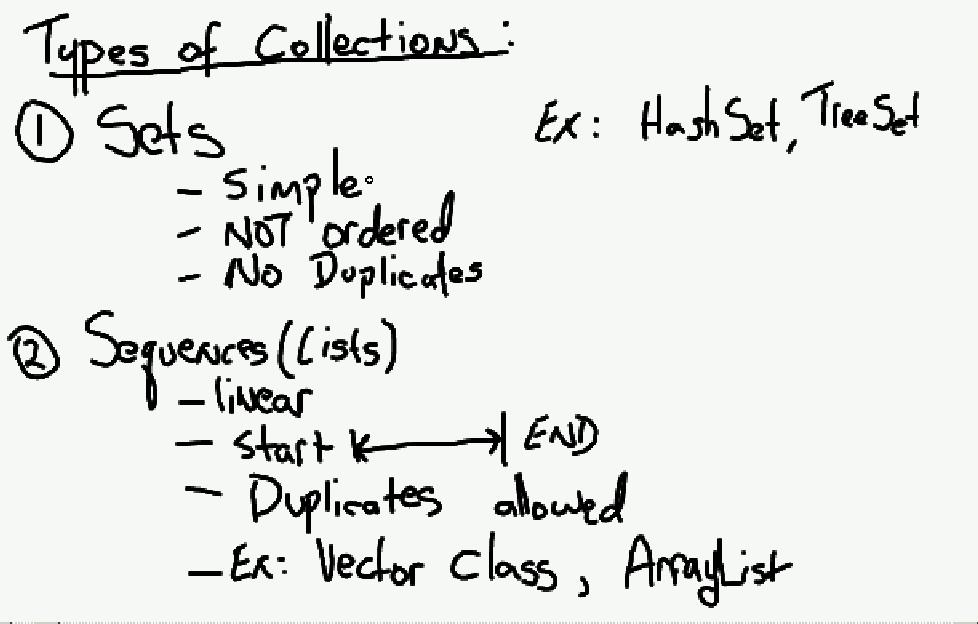 Types of Collections:
① Sets Ex: HashSet, TreeSet
- Simple
- NOT ordered
- No Duplicates
② Sequences (Lists)
- linear
- start |<--->| END
- Duplicates allowed
- Ex: Vector Class, ArrayList